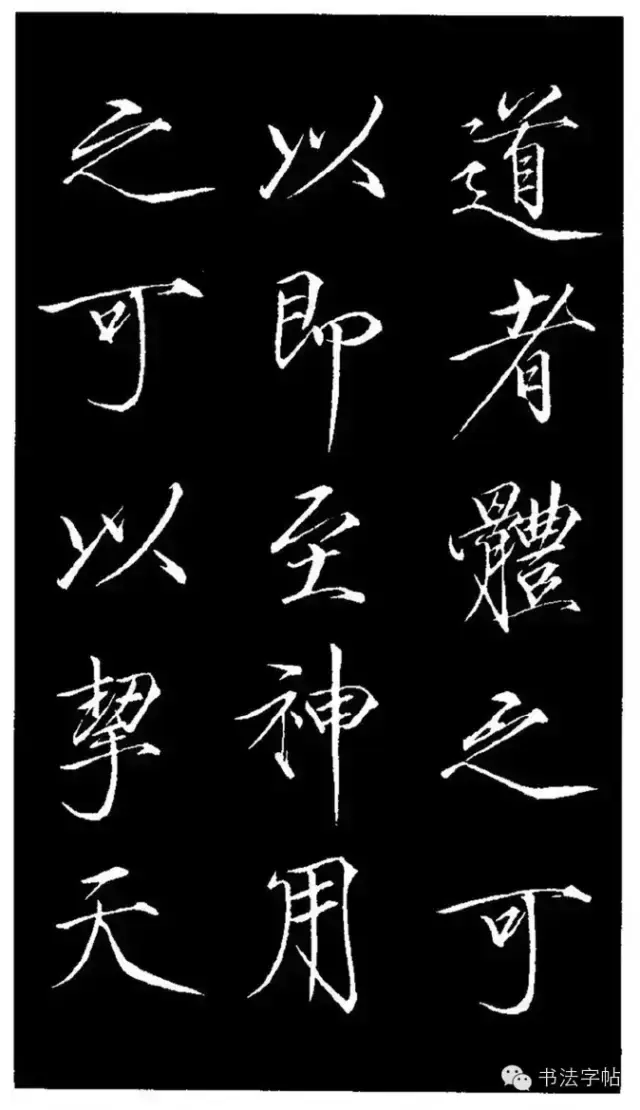 道者體之可
以即至神用
之可以挈天
书法字帖